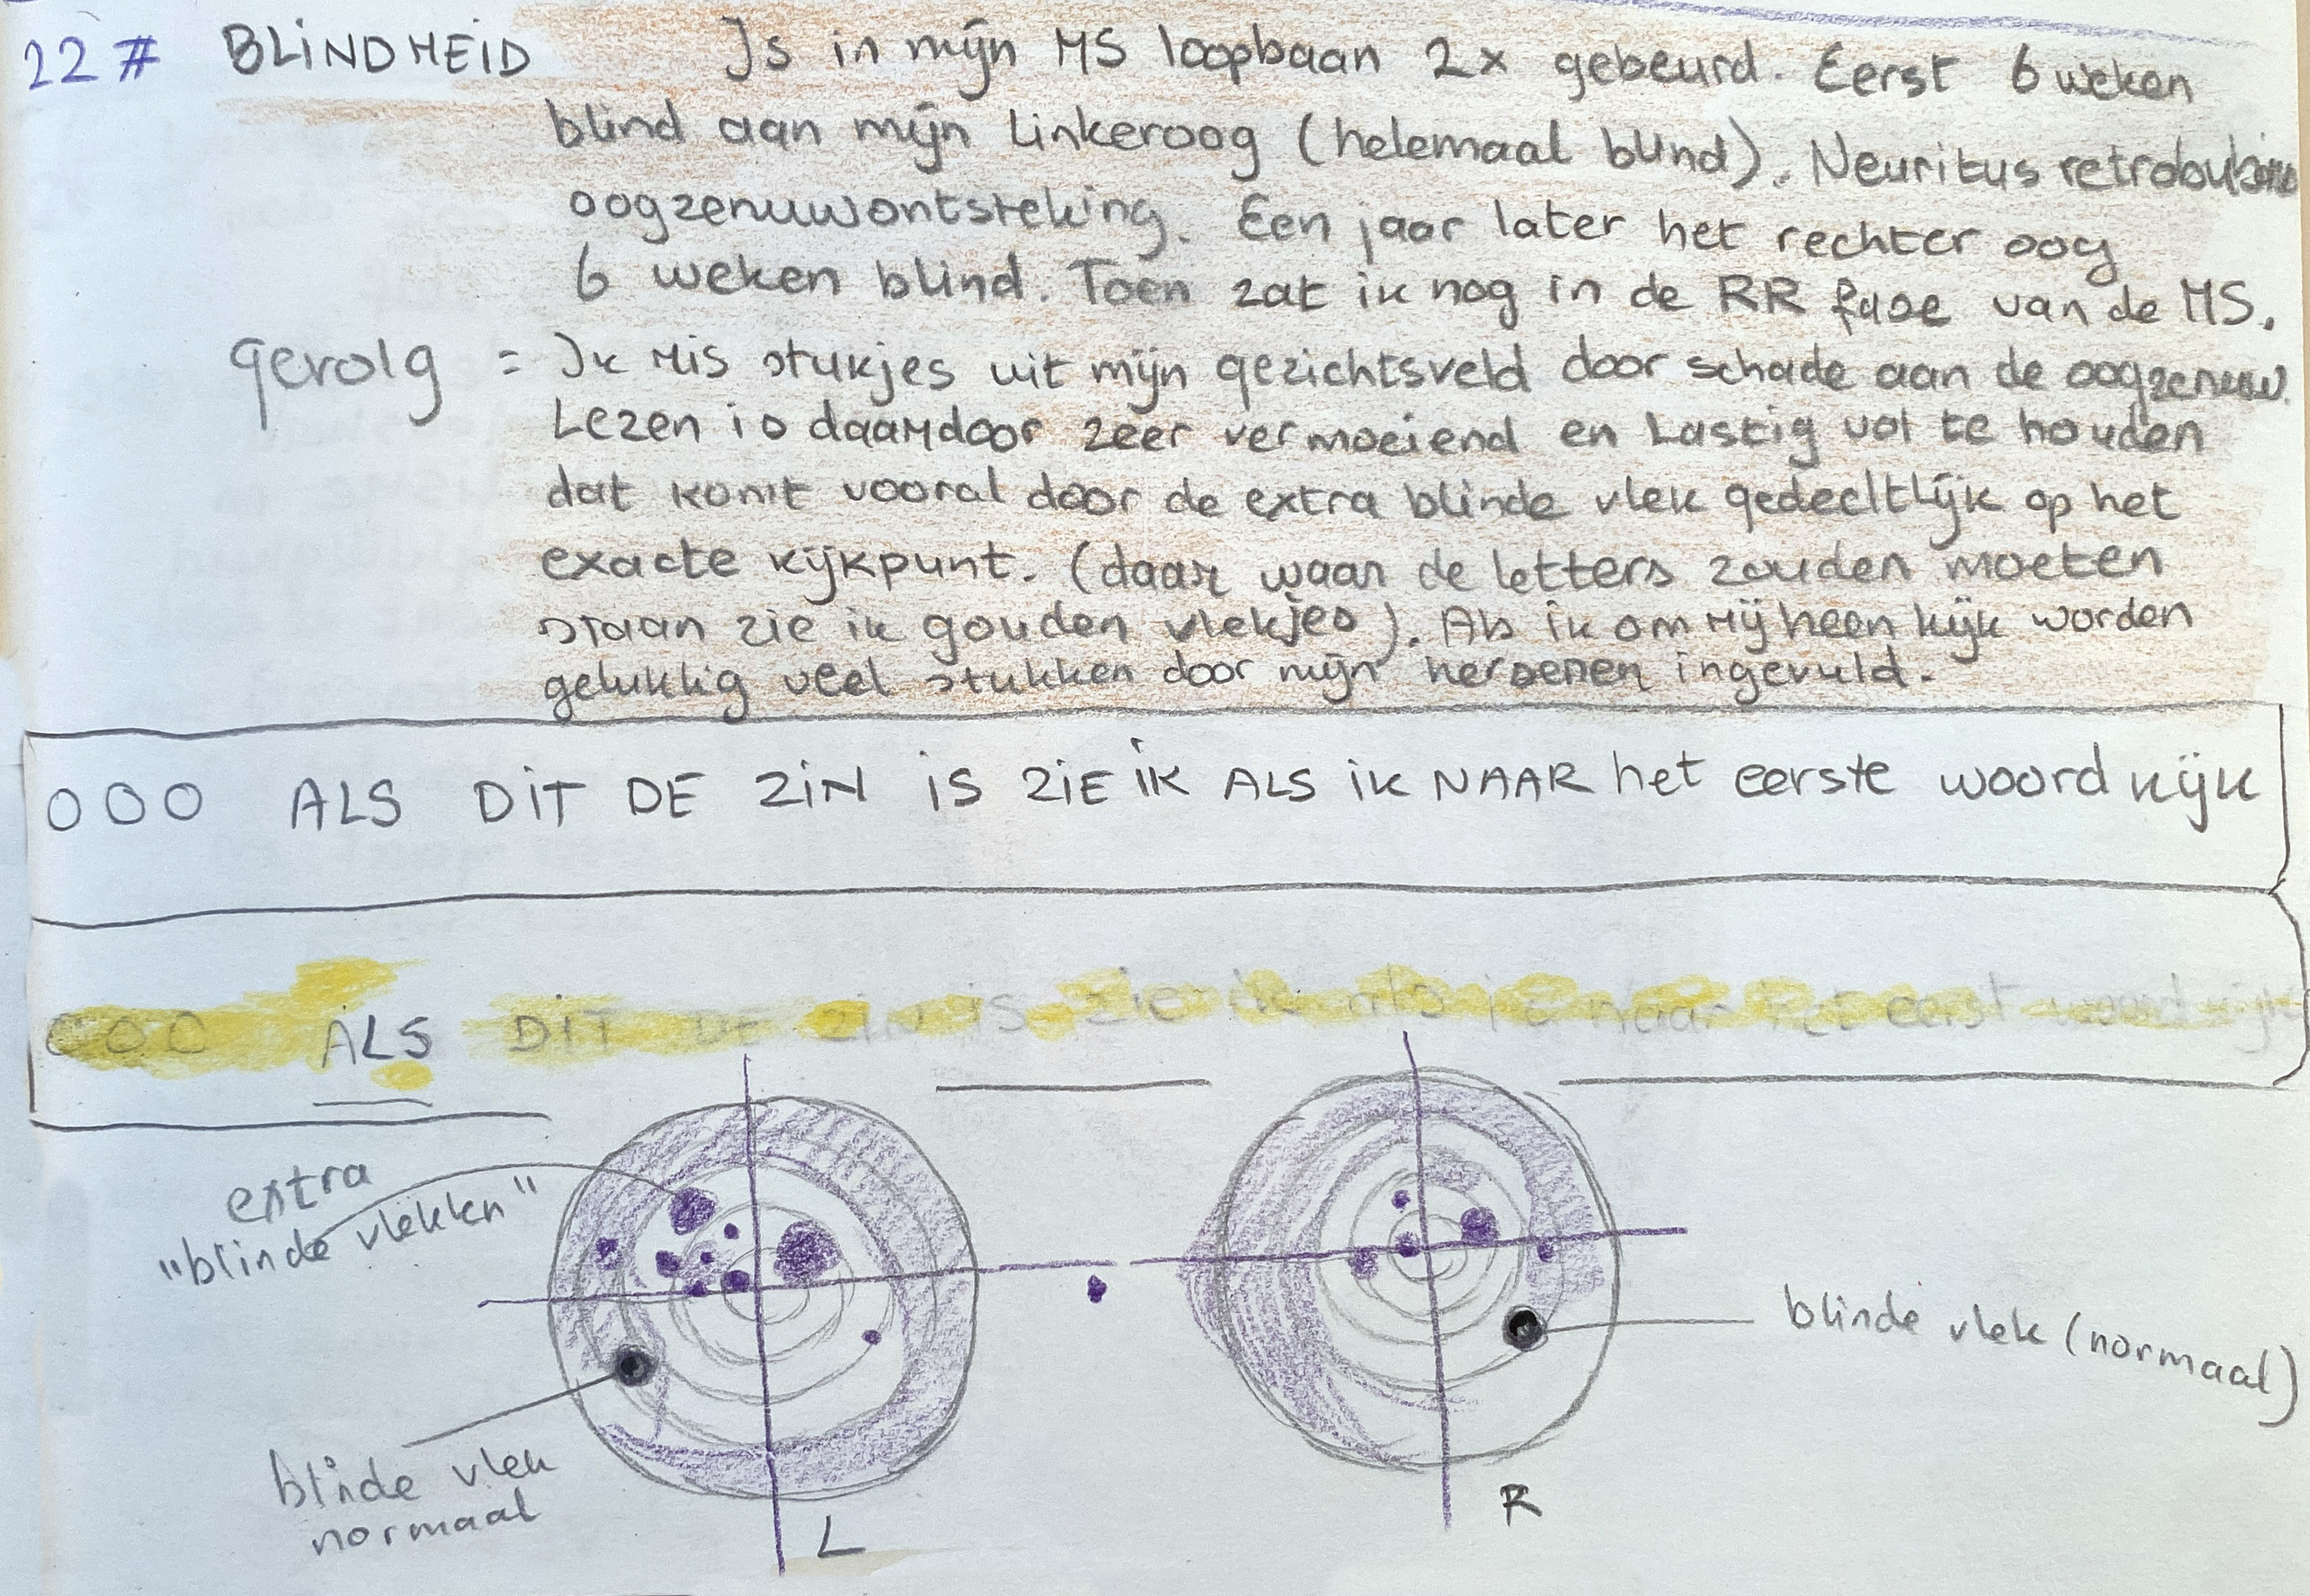 22# BLINDHEID Is in mijn MS loopbaan 2x gebeurd. Eerst 6 weken
blind aan mijn linkeroog (helemaal blind). Neuritus
oogzenuwontsteking. Een jaar later het rechter oog
6 weken blind. Toen zat ik nog in de RR fase van de MS.
gevolg = Ik mis stukjes uit mijn gezichtsveld door schade aan de oogzenuw.
Lezen is daardoor zeer vermoeiend en lastig vol te houden
dat komt vooral door de extra blinde vlek gedeeltlijk op het
exacte kijkpunt. (daar waar de letters zouden moeten
staan zie ik gouden vlekjes). Als ik om mij heen kijk worden
gelukkig veel stukken door mijn hersenen ingevuld.
OOO ALS DIT DE ZIN IS ZIE IK ALS IK NAAR het eerste woord kijk
OOO ALS DIT DE ZIN is zie ik als ik naar het eerst woord kijk
extra
"blinde vlekken"
blinde vlek (normaal)
blinde vlek
normaal
L
R